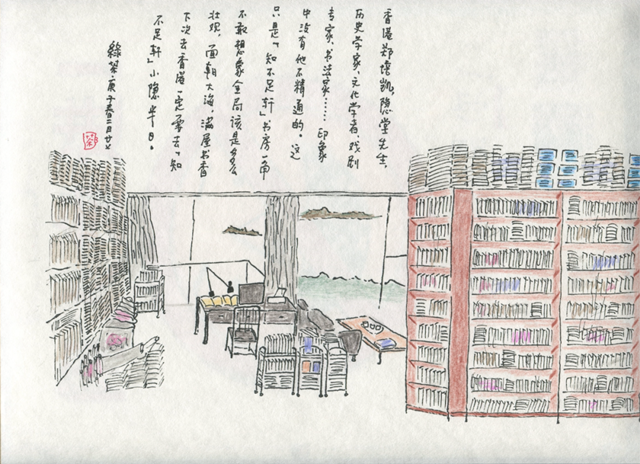 香港郑培凯,隐堂先生、
历史学家、文化学者、戏剧
专家、书法家……印象
中没有他不精通的。这
只是「知不足轩」书房一角
不敢想象全局该是多么
壮观，面朝大海，满屋书香
下次去香港一定要去「知
不足轩」小隐半日。
綠茶庚子春二月廿